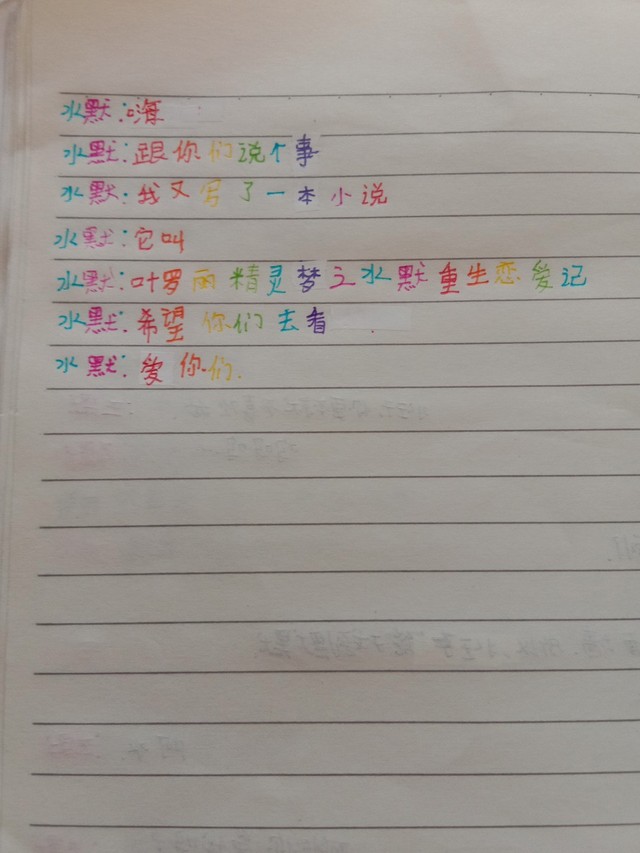 水默:嗨
水默:跟你们说个事
水默:我又写了一本小说
水默:它叫
水默:叶罗丽精灵梦之水默重生恋爱记
水默:希望你们去看
水默:爱你们.